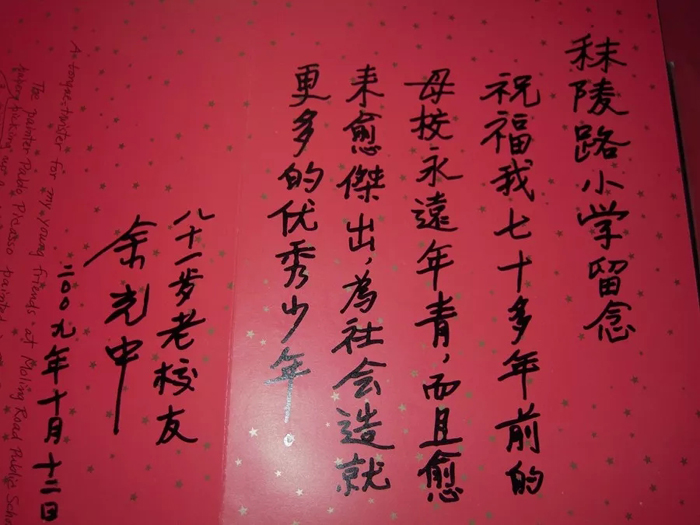 秣陵路小学留念
祝福我七十多年前的
母校永遠年青，而且愈
来愈傑出，為社会造就
更多的优秀少年。
八十一岁老校友
余光中
二〇〇九年十月十二日
A tongue twister for my young friends at Moling Road Public
The painter Pablo Picasso painted